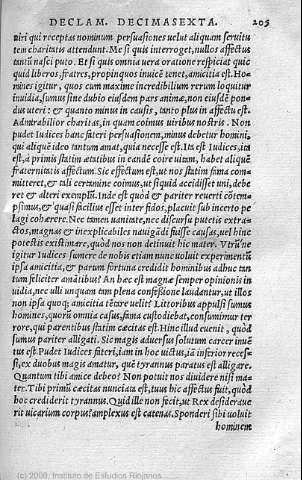 DECLAM. DECIMASEXTA. 205
niri qui receptas nominum persuasiones uelut aliquam seruitu
tem charitatis attendunt. Me si quis interroget, nullos affectus
tantũ nasci puto. Et si quis omnia uera oratione respiciat quic
quid liberos, fratres, propinquos inuicẽ tenet, amicitia est. Ho=
mines igitur, quos cum maxime incredibilium rerum loquitur
inuidia, sumus sine dubio eiusdem pars animæ, non eiusdẽ pon
dus uteri: & quanto minus in causis, tanto plus in affectu est.
Admirabilior charitas, in quam coimus uiribus nostris. Non
pudet Iudices hanc fateri persuasionem, minus debetur homini,
qui aliquẽ ideo tantum amat, quia necesse est. Ita est Iudices, ita
est, à primis statim ætatibus in eandẽ coire uiam, habet aliquẽ
fraternitatis affectum. Sic effectum est, ut nos statim fama com
mitteret, & tali certamine coimus, ut siquid accidisset uni, debe
ret & alteri exemplũ. Inde est quod & pariter reuerti
pissimus, & quasi facilius esset inter fidos, placuit sub incerto pe
lagi cohærere. Nec tamen uanitate, nec discursu putetis extra=
ctos, magnas & inexplicabiles nauigãdi fuisse causas, uel hinc
potestis existimare, quòd nos non detinuit hic mater. Vtrũ ne
igitur Iudices sumere de nobis etiam nunc uoluit experimentũ
ipsa amicitia, & parum fortuna credidit hominibus adhuc tan
tum feliciter amãtibus? An hæc est magnæ semper opinionis in
uidia, nec ulli unquam tam plena confessione laudantur, ut illos
non ipsa quoq; amicitia tẽtare uelit? Littoribus appulsi sumus
homines, quorũ omnia casus, fama custodiebat, consumimur ter
rore, qui parentibus statim cæcitas est. Hinc illud euenit, quòd
sumus pariter alligati. Sic magis aduersus solutum carcer inuẽ
tus est. Pudet Iudices fateri, iam in hoc uictus, iã inferior reces=
si, ex duobus magis amatur, quẽ tyrannus paratus est alligare.
Quantum tibi amice debeo! Non potuit nos diuidere nisi ma=
ter. Tibi primũ cæcitas nunciata est, tuus hic affectus fuit, quòd
hoc crediderit tyrannus. Quid ille non fecit, ut Rex desideraue
rit uicarium corpus? amplexus est catenas. Sponderi sibi uoluit
hominem
(c) 2009, Instituto de Estudios Riojanos